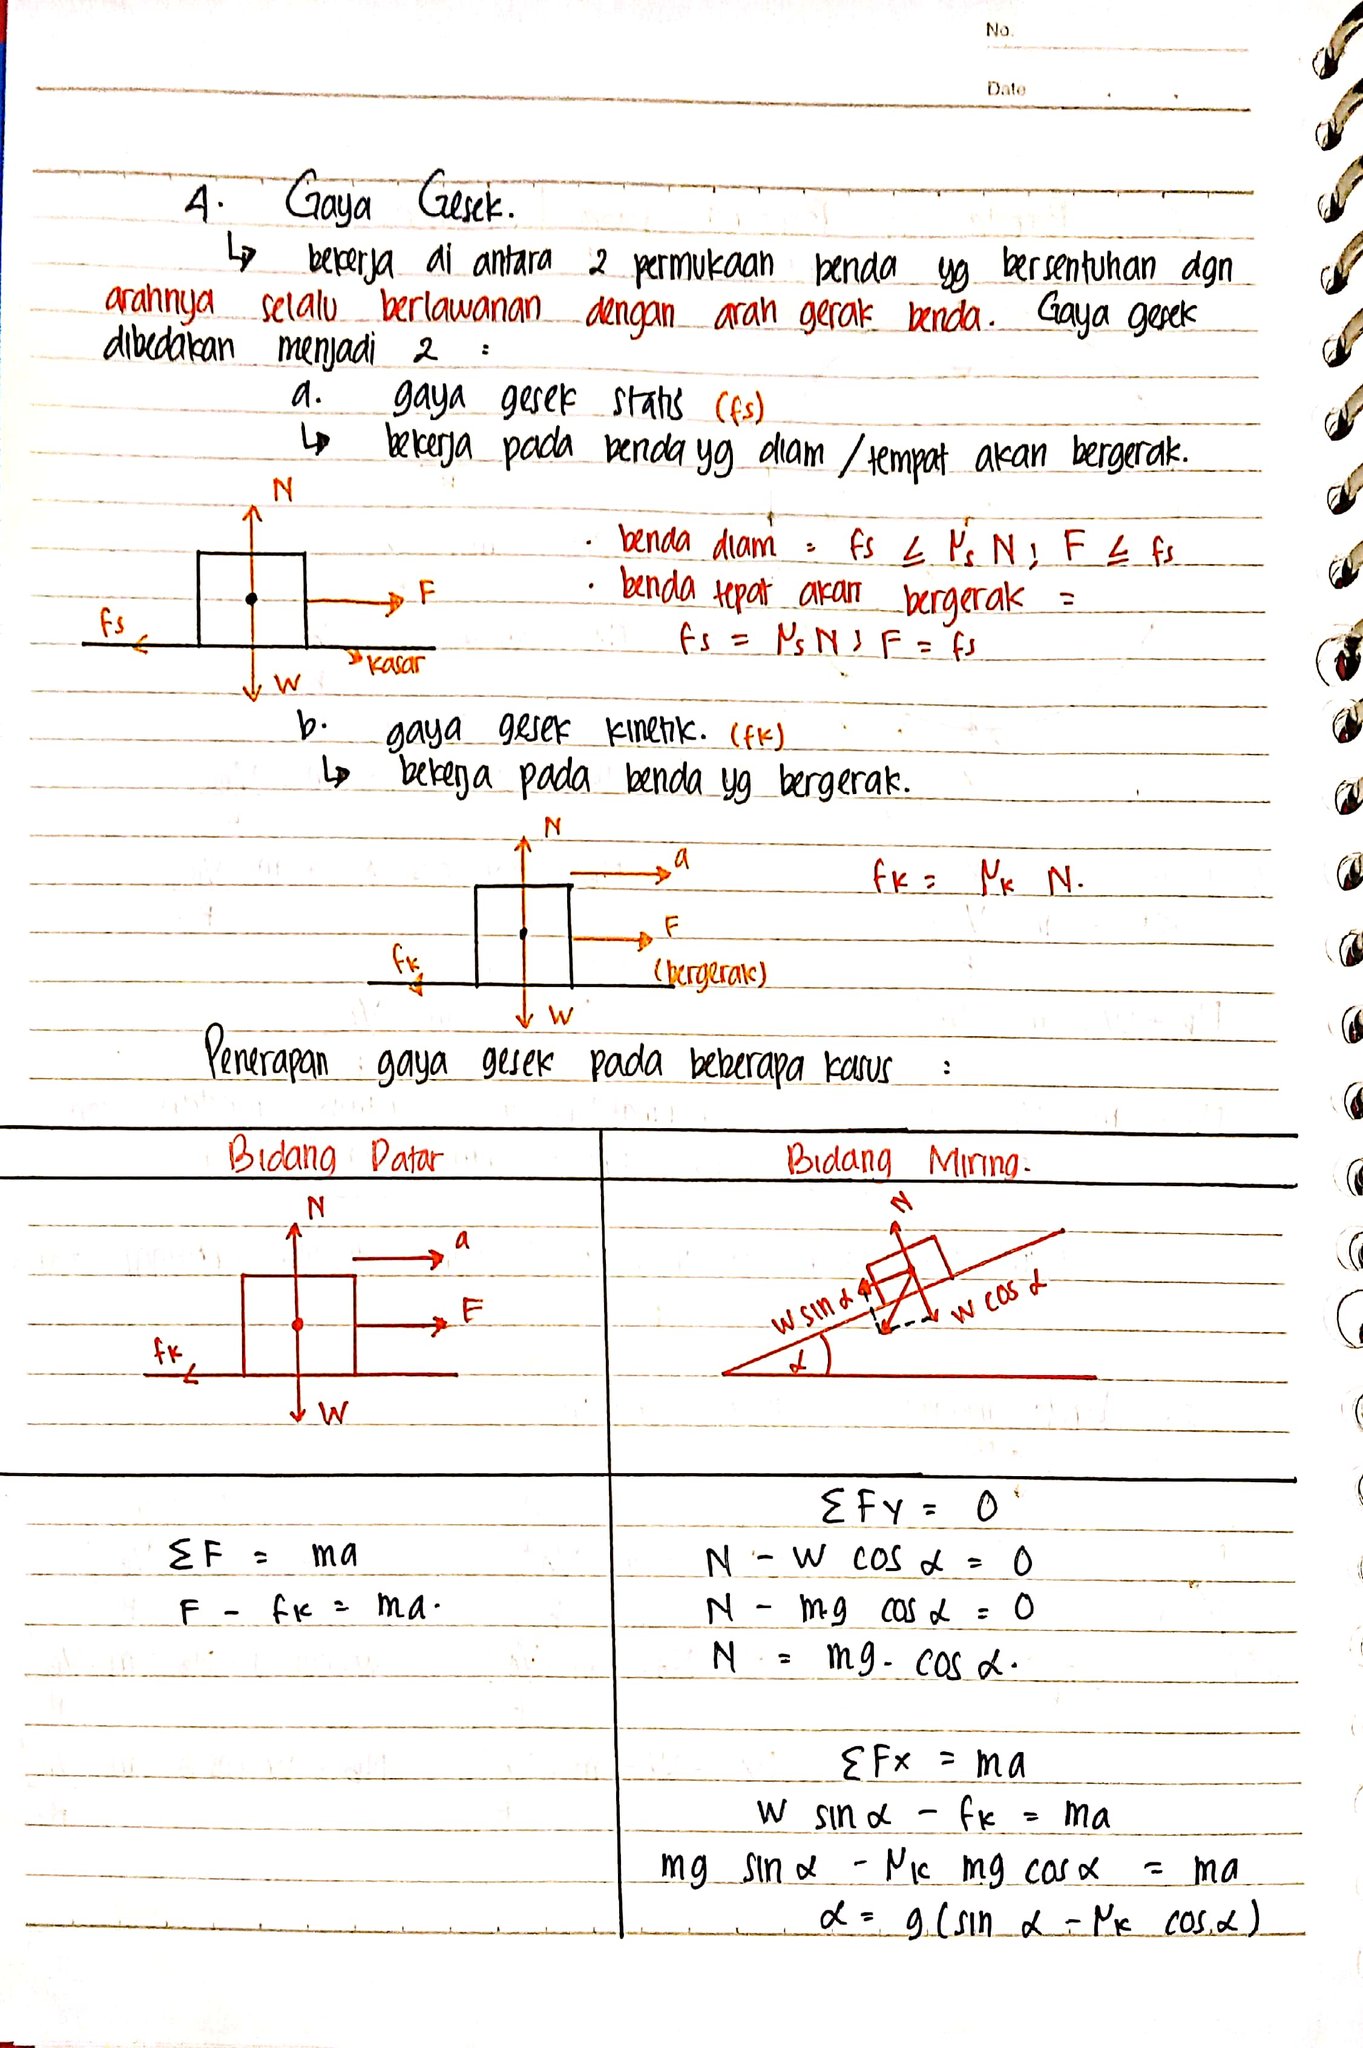 No.
Date
4. Gaya Gesek.
↳ bekerja di antara 2 permukaan benda yg bersentuhan dgn
arahnya selalu berlawanan dengan arah gerak benda. Gaya gesek
dibedakan menjadi 2 :
a. gaya gesek statis (fs)
↳ bekerja pada benda yg diam / tempat akan bergerak.
N
F
fs
kasar
W
· benda diam = fs ≤ μs N ; F ≤ fs
· benda tepat akan bergerak =
fs = μs N ; F = fs
b. gaya gesek kinetik. (fk)
↳ bekerja pada benda yg bergerak.
N
a
F
(bergerak)
fk
W
fk = μk N.
Penerapan gaya gesek pada beberapa kasus :
Bidang Datar
N
a
F
fk
W
ΣF = ma
F - fk = ma.
Bidang Miring.
N
W sin α
W cos α
α
ΣFy = 0
N - W cos α = 0
N - mg cos α = 0
N = mg. cos α.
ΣFx = ma
W sin α - fk = ma
mg sin α - μk mg cos α = ma
α = g (sin α - μk cos α)